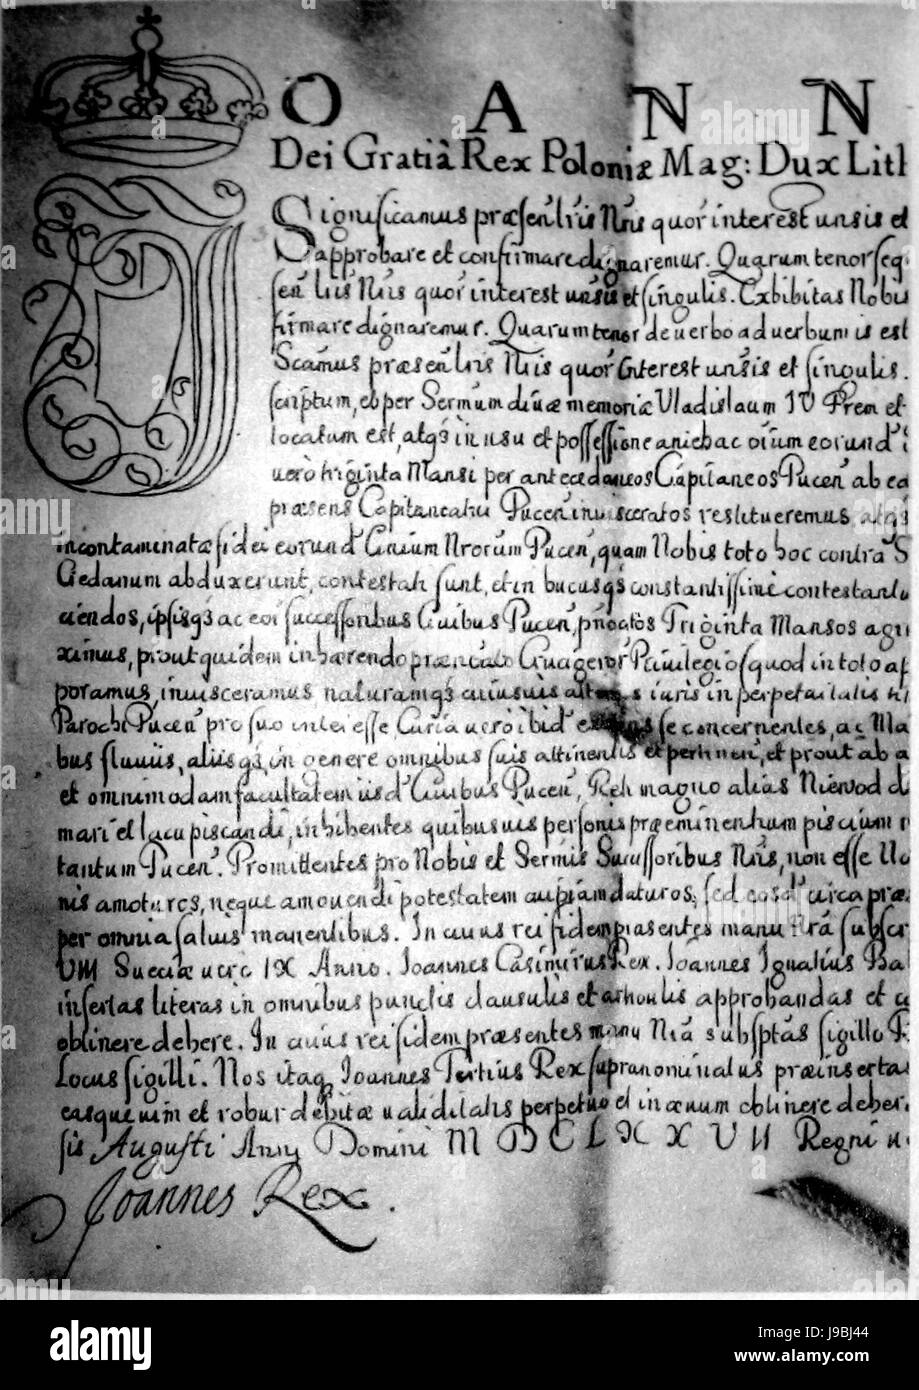 J OANN
Dei Gratiâ Rex Poloniæ Mag: Dux Lith
Significamus præsentibus Nris quor interest unsis et
approbare et confirmare dignaremur. Quarum tenor seq
sentibus Nris quor interest unsis et singulis. Exhibitas Nobis
firmare dignaremur. Quarum tenor de verbo ad verbum is est
Scamus præsentibus Nris quor interest unsis et singulis.
scriptum, et per Sermum divæ memoriæ Vladislaum IV Prem et
locatum est, atqs in usu et possessione eorund
vero triginta Mansi per antecedaneos Capitaneos Pucen ab ea
præsens Capitaneatui Pucen invisceratos restitueremus atqs
incontaminatæ fidei eorund Civium Nrorum Pucen, quam Nobis toto hoc contra S
Gedanum abduxerunt, contestati sunt, et in hucusqs constantissime contestantu
ciendos, ipsisqs ac eor successoribus Civibus Pucen, pnoctos Triginta Mansos agri
ximus, prout quidem inhærendo Privilegio quod in toto ap
poramus, invisceramus naturamqs cuiusvis alterius iuris in perpetuitatis
Parochi Pucen pro suo interesse Curia vero ibid se concernentes, ac Ma
bus fluviis, aliisqs in genere omnibus suis attinentiis et pertinen, et prout ab a
et omnimodam facultatem iisd Civibus Pucen, Reti magno alias Niewod d
mari et lacu piscandi, inhibentes quibusvis personis præeminentium piscium
tantum Pucen. Promittentes pro Nobis et Sermis Successoribus Nris, non esse No
nis amoturos, neque amovendi potestatem cuipiam daturos, sed eosd circa præ
per omnia salvis manentibus. In cuius rei fidem præsentes manu Nrâ subscr
VIII Sueciæ vero IX Anno. Ioannes Casimirus Rex. Ioannes Ignatius Ba
insertas literas in omnibus punctis clausulis et articulis approbandas et c
obtinere debere. In cuius rei fidem præsentes manu Nrâ subsptas sigillo R
Locus sigilli. Nos itaq Ioannes Tertius Rex supranominatus præinsertas
easque vim et robur debitæ validitatis perpetuo et in ævum obtinere deber
sis Augusti Anno Domini M D C L X X V II Regni v
Joannes Rex.
alamy
Image ID: J9BJ44
www.alamy.com